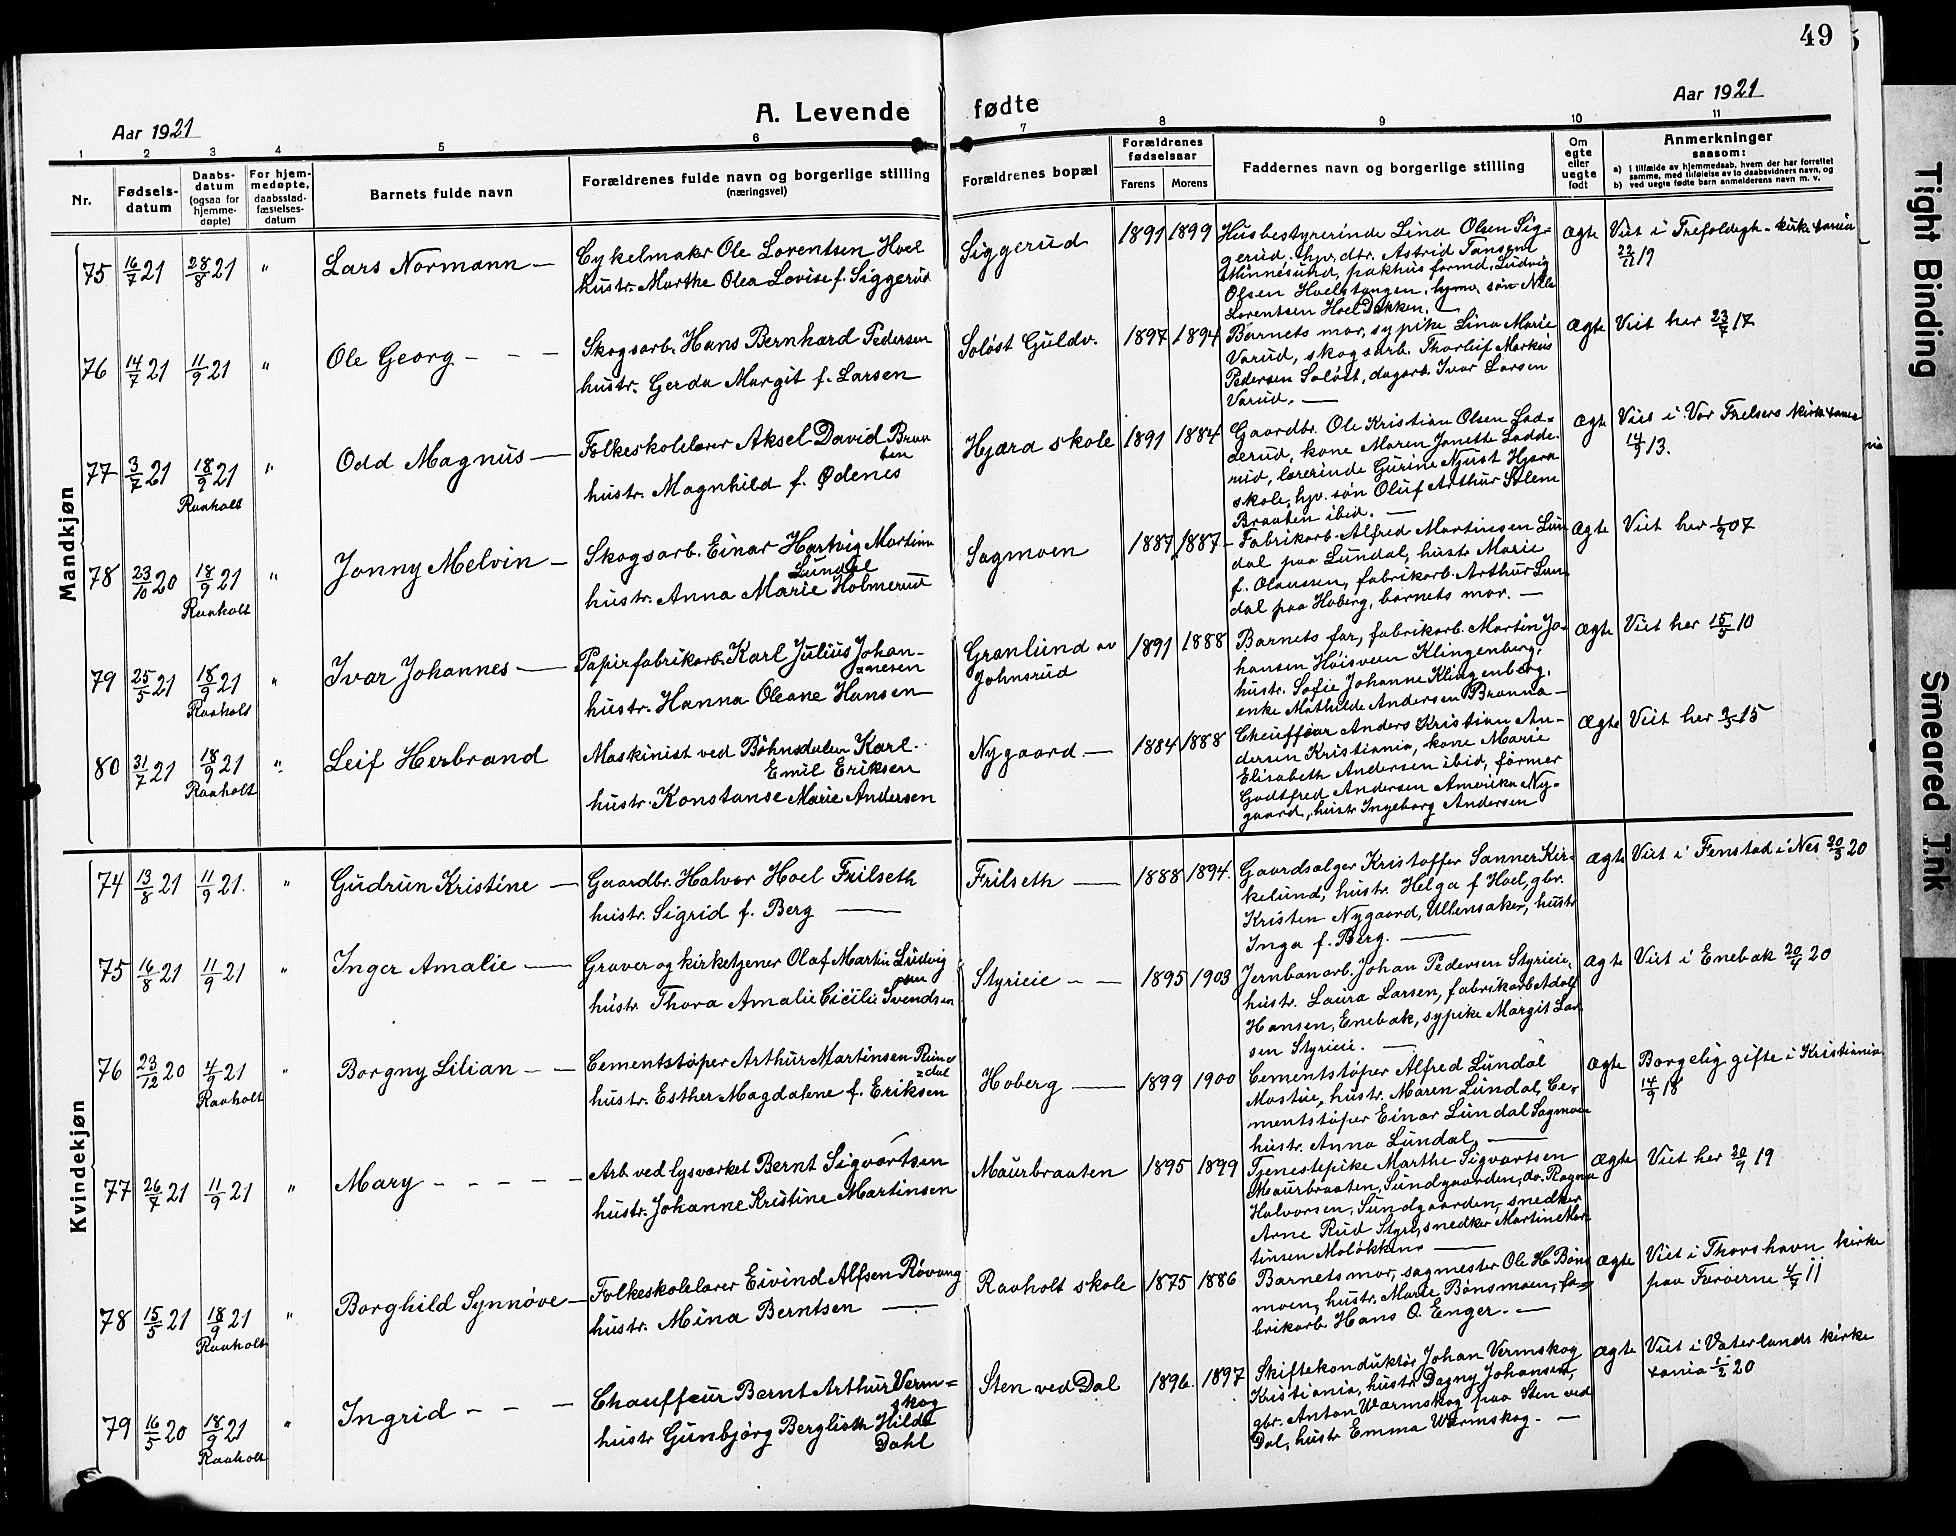 49
Aar 1921
A. Levende fødte
Aar 1921
1 2 3 4 5 6 7 8 9 10 11
Nr.
Fødsels-
datum
Daabs-
datum
(ogsaa for
hjemme-
døpte)
For hjem-
medøpte,
daabsstad-
fæstelses-
datum
Barnets fulde navn
Forældrenes fulde navn og borgerlige stilling
(næringsvei)
Forældrenes bopæl
Forældrenes
fødselsaar
Farens Morens
Faddernes navn og borgerlige stilling
Om
egte
eller
uegte
født
Anmerkninger
saasom:
a) i tilfælde av hjemmedaab, hvem der har forrettet
samme, med tilføielse av to daabsvidners navn, og
b) ved uegte fødte barn anmelderens navn m. v.
Mandkjøn
75 16/7 21 28/8 21 " Lars Normann —
Cykelmaker Ole Lorentsen Hoel
hustr. Marthe Olea Lovise f. Siggerud
Siggerud 1891 1899
Husbestyrerinde Lina Olsen Sig-
gerud, hjv. dtr. Astrid Tansem
Minnesund, pakhusformd. Ludvig
Olsen Hoelstangen, hjmv. søn Nils
Lorentsen Hoel Dokken. —
ægte Viet i Trefoldigh-kirke tania
22/11 19
76 14/7 21 11/9 21 " Ole Georg - - -
Skogsarb. Hans Bernhard Pedersen
hustr. Gerda Margit f. Larsen
Soløst Guldv. 1897 1894
Barnets mor, sypike Lina Marie
Varud, skogsarb. Thorleif Markus
Pedersen Soløst, dagarb. Ivar Larsen
Varud. —
ægte Viet her 23/7 17
77 3/7 21 18/9 21 " Odd Magnus —
Raaholt
Folkeskolelærer Aksel David Braa
ten
hustr. Magnhild f. Ødenes
Hjæra skole 1891 1884
Gaardbr. Ole Kristian Olsen Lad-
derud, kone Maren Janette Ladde-
rud, lærerinde Gurine Njust Hjæra
skole, hjv. søn Oluf Arthur Solem
Braaten ibid. —
ægte Viet i Vor Frelsers kirke tania
14/9 13.
78 23/10 20 18/9 21 " Jonny Melvin —
Raaholt
Skogsarb. Einar Hartvig Martin
Lundal
hustr. Anna Marie Holmerud
Sagmoen 1887 1887
Fabrikarb. Alfred Martinsen Lun
dal paa Lundal, hustr. Marie
f. Olaussen, fabrikarb. Arthur Lun-
dal paa Hoberg, barnets mor. —
ægte Viet her 1/9 07
79 25/5 21 18/9 21 " Ivar Johannes —
Raaholt
Papirfabrikarb. Karl Julius Johan-
nesen
hustr. Hanna Oleane Hansen
Grønlund av
Johnsrud
1891 1888
Barnets far, fabrikarb. Martin Jo-
hansen Høisveen Klingenberg,
hustr. Sofie Johanne Klingenberg,
enke Mathilde Andersen Brenna —
ægte Viet her 15/5 10
80 31/7 21 18/9 21 " Leif Herbrand
Raaholt
Maskinist ved Bøhnsdalen Karl
Emil Eriksen
hustr. Konstanse Marie Andersen
Nygaard — 1884 1888
Chauffør Anders Kristian An-
dersen Kristiania, kone Marie
Elisabeth Andersen ibid, farmer
Godtfred Andersen Amerika Ny-
gaard, hustr. Ingeborg Andersen
ægte Viet her 15
Kvindekjøn
74 13/8 21 11/9 21. " Gudrun Kristine —
Gaardbr. Halvor Hoel Frilseth
hustr. Sigrid f. Berg —
Frilseth — 1888 1894.
Gaardsælger Kristoffer Sanner Kir-
kelund, hustr. Helga f. Hoel, gbr.
Kristen Nygaard, Ullensaker, hustr
Inga f. Berg. —
ægte Viet i Fenstad i Nes 20/3 20
75 16/8 21 11/9 21 " Inger Amalie —
Graver og kirketjener Olaf Martin Ludvig
sen
hustr. Thora Amalie Cicilie Svendsen
Styrieie - - 1895 1903
Jernbanarb. Johan Pedersen Styrieie,
hustr. Laura Larsen, fabrikarb. Adolf
Hansen, Enebak, sypike Margit Lar
sen Styrieie. —
ægte Viet i Enebak 20/4 20
76 23/12 20 4/9 21 " Borgny Lilian - -
Raaholt
Cementstøper Arthur Martinsen Rein-
dal
hustr. Esther Magdalene f. Eriksen
Hoberg — 1899 1900
Cementstøper Alfred Lundal
Mostue, hustr. Maren Lundal, Ce-
mentstøper Einar Lundal Sagmoen
hustr. Anna Lundal. —
ægte Borgelig gifte i Kristiania
14/9 18
77 26/7 21 11/9 21 " Mary - - - - -
Arb. ved lysverket Bernt Sigvartsen
hustr. Johanne Kristine Martinsen
Maurbraaten 1895 1899
Tjenestepike Marthe Sigvartsen
Maurbraaten, Sundgaarden, do. Ragna
Halvorsen, Sundgaarden, snedker
Arne Rud Styri, snedker Martin Mar-
tinsen Moløkken —
ægte Viet her 20/9 19
78 15/5 21 18/9 21 " Borghild Synnøve —
Raaholt
Folkeskolelærer Eivind Alfsen Røvang
hustr. Mina Berntsen —
Raaholt skole 1875 1886
Barnets mor, sagmester Ole H. Bøns
moen, hustr. Marie Bønsmoen, fa-
brikarb. Hans O. Enger. —
ægte Viet i Thorshavn kirke
paa Færøerne 4/7 11
79 16/5 20 18/9 21 " Ingrid - - -
Raaholt
Chauffeur Bernt Arthur Verm-
skog
hustr Gunbjørg Berglioth Hilda
Dahl
Sten ved Dal 1896. 1897
Skiftekonduktør Johan Vermskog
Kristiania, hustr. Dagny Johansen,
gbr. Anton Wærmskog paa Sten ved
Dal, hustr Emma Wærmskog. —
ægte Viet i Vaterlands kirke
tania 1/2 20
Tight Binding
Smeared Ink